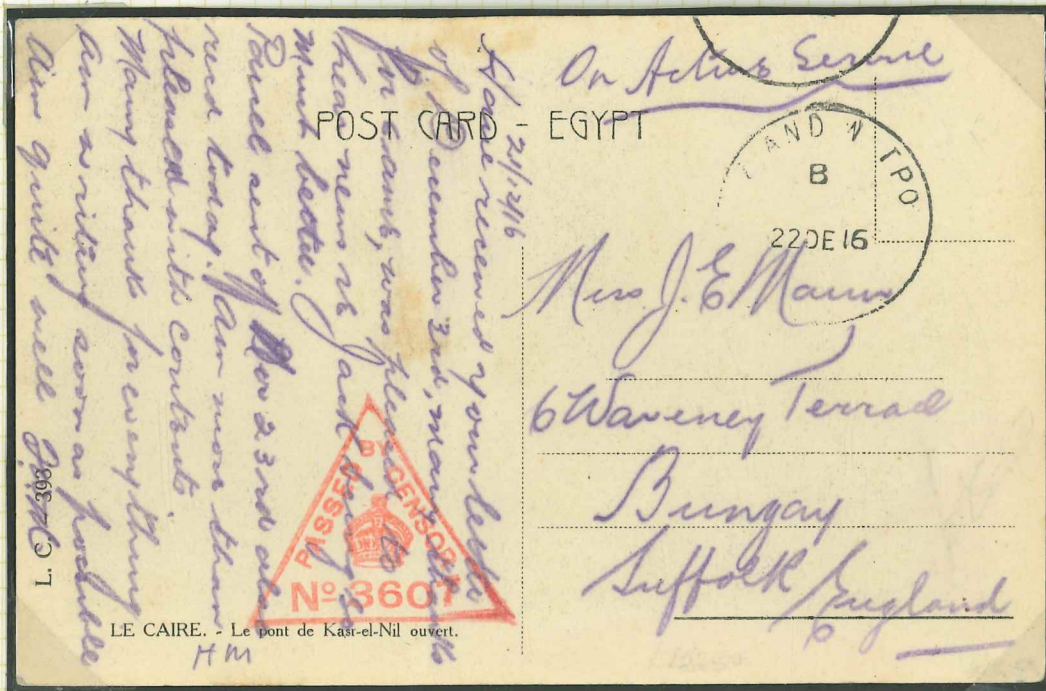 On Active Service
POST CARD - EGYPT
AND N TPO
B
22 DE 16
Miss J. E. Mann
6 Waveney Terrace
Bungay
Suffolk
England
21/12/16
Have received your letter
of December 3rd, many thanks
for same, was pleased to
hear news re Jack being so
much better.
Parcel sent off Nov 23rd also
recd today. Am more than
pleased with contents
Many thanks for everything
am writing soon as possible
am quite well
PASSED BY CENSOR
No 3607
L. C. - 393
LE CAIRE. - Le pont de Kasr-el-Nil ouvert.
HM